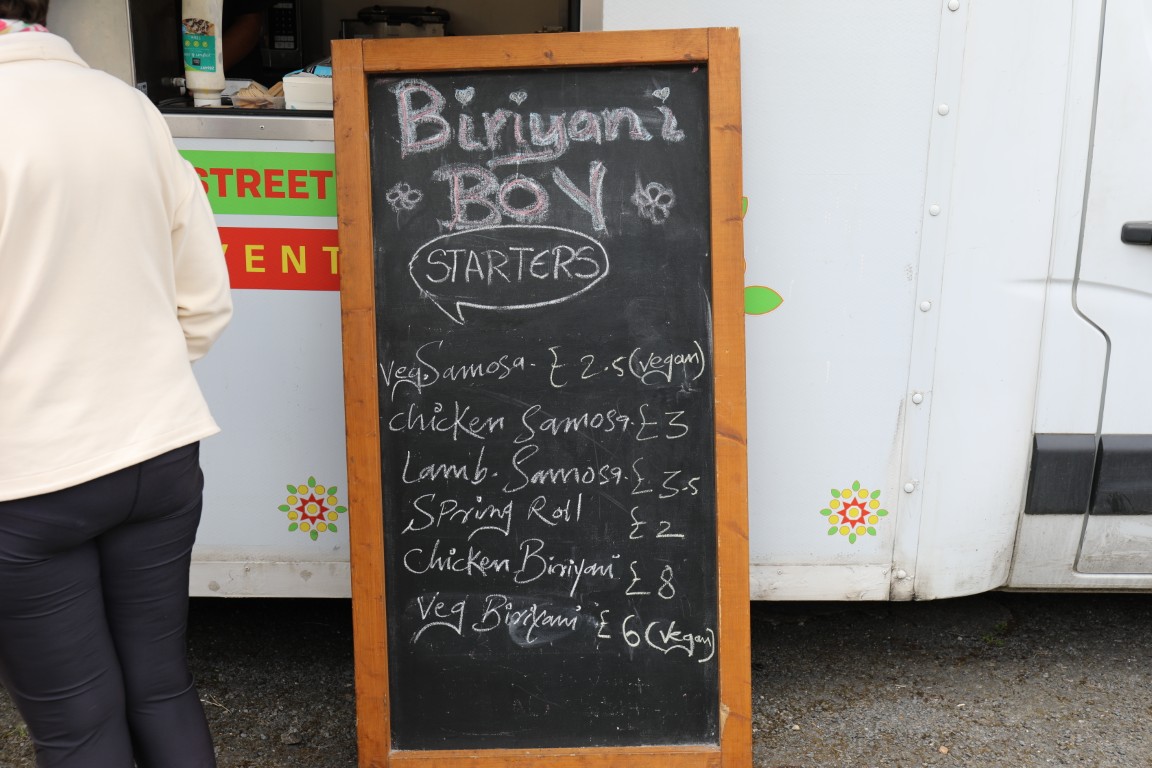 Biriyani
BOY
STARTERS
STREET
VENT
Veg. Samosa. £2.5 (vegan)
Chicken Samosa. £3
Lamb. Samosa. £3.5
Spring Roll £2
Chicken Biriyani £8
Veg Biriyani £6 (vegan)